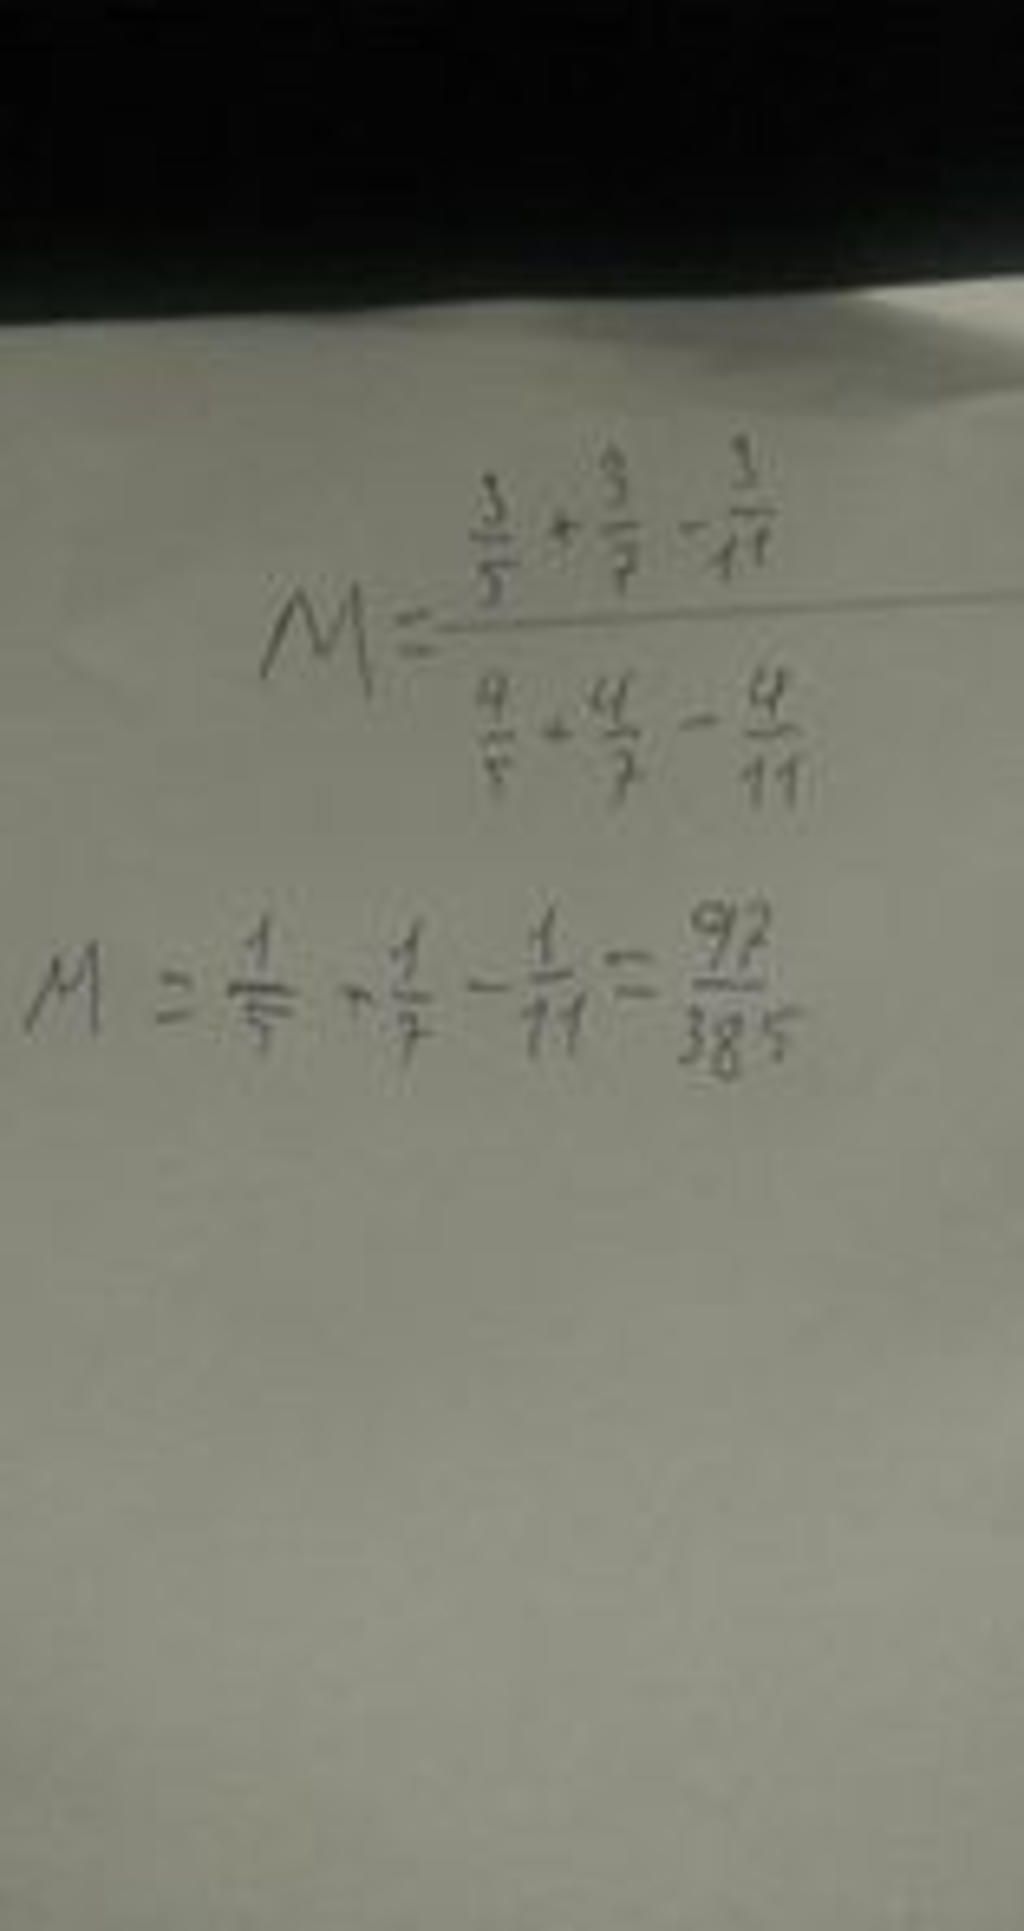 M = (3/5 + 3/7 - 3/11) / (4/5 + 4/7 - 4/11)
M = 1/5 + 1/7 - 1/11 = 97/385